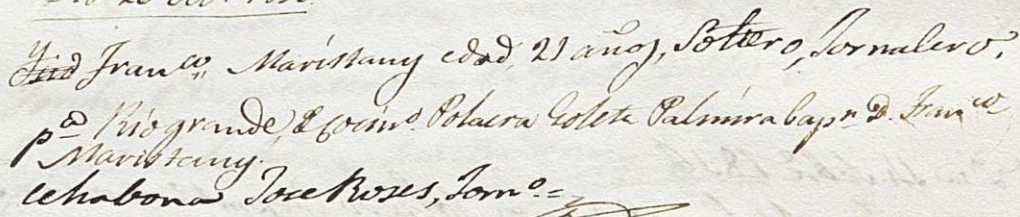 Yd Franco Maristany edad, 21 años, Soltero, Jornalero,
pa Riogrande, Polacra Goleta Palmira Capn D. Franco
Maristany.
le habona Jose Roses, Jorno =